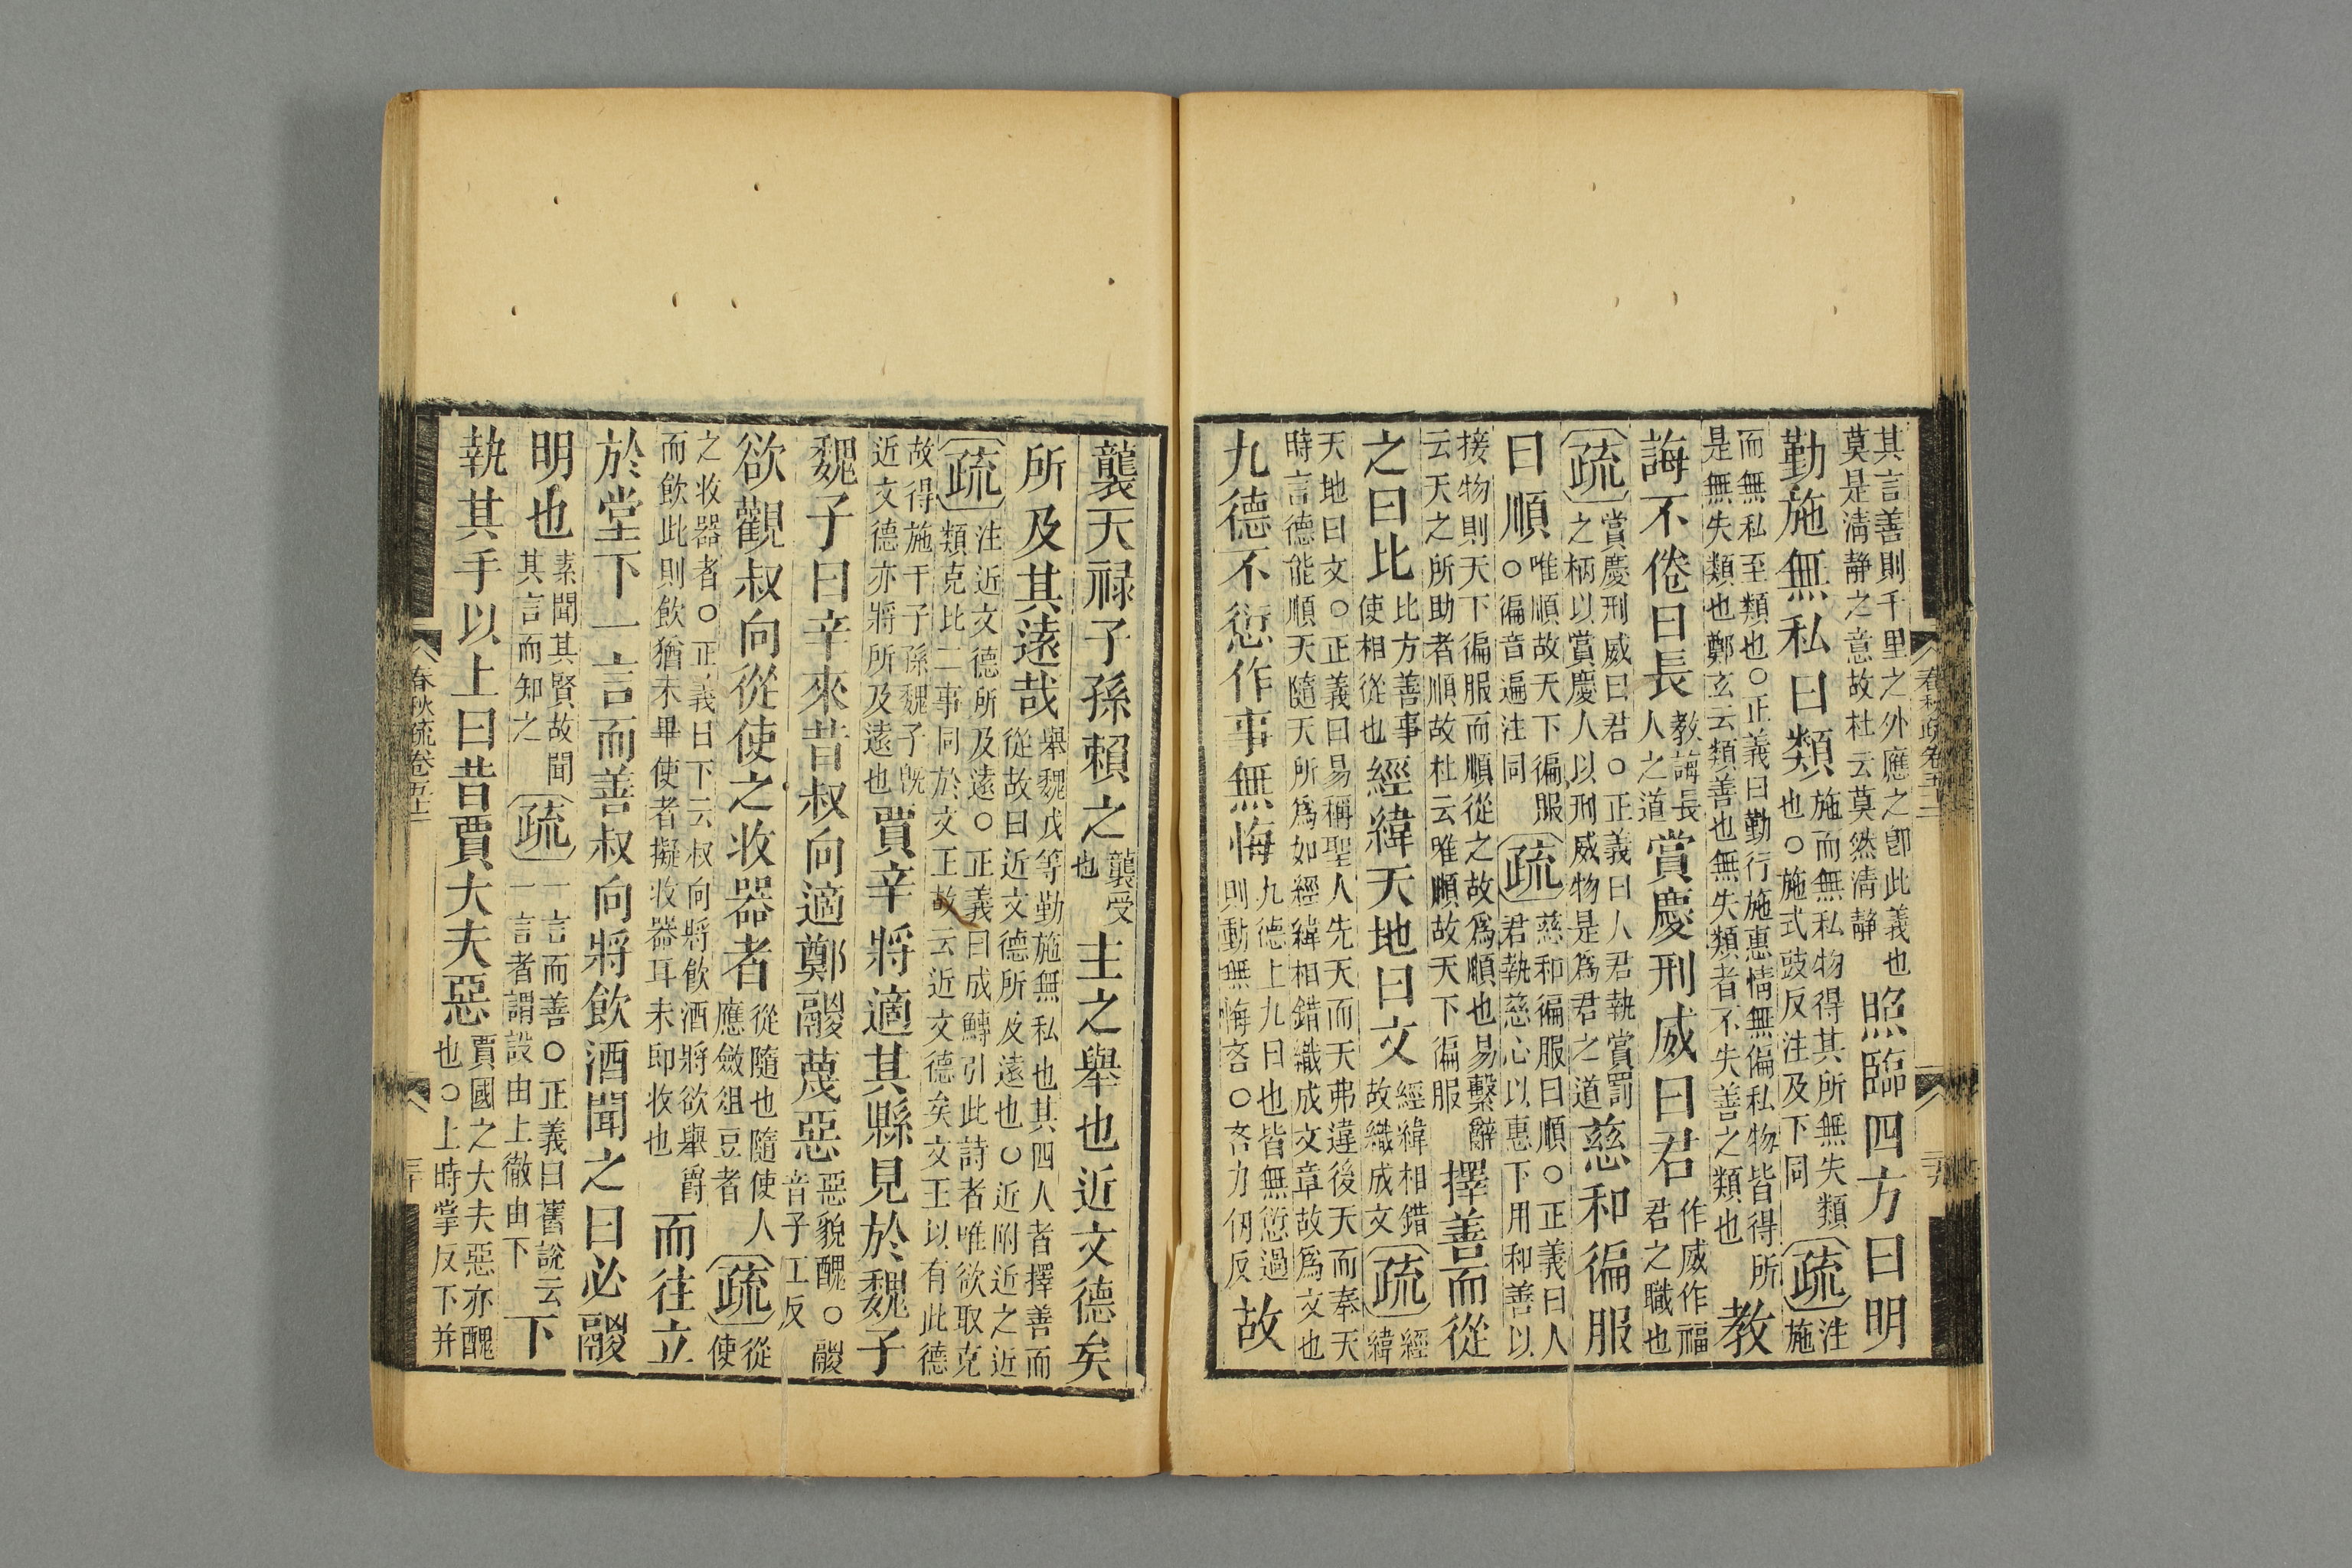 其言善則千里之外應之卽此義也
莫是清靜之意故杜云莫然清靜
照臨四方曰明
勤施無私曰類
施而無私物得其所無失類
也○施式豉反注及下同
疏
注
施
而無私至類也○正義曰勤行施惠情無偏私物皆得所
是無失類也鄭玄云類善也無失類者不失善之類也
教
誨不倦曰長
教誨長
人之道
賞慶刑威曰君
作威作福
君之職也
疏
賞慶刑威曰君○正義曰人君執賞罰
之柄以賞慶人以刑威物是爲君之道
慈和徧服
曰順
唯順故天下徧服
○徧音遍注同
疏
慈和徧服曰順○正義曰人
君執慈心以惠下用和善以
接物則天下徧服而順從之故爲順也易繫辭
云天之所助者順故杜云唯順故天下徧服
擇善而從
之曰比
比方善事
使相從也
經緯天地曰文
經緯相錯
故織成文
疏
經
緯
天地曰文○正義曰易稱聖人先天而天弗違後天而奉天
時言德能順天隨天所爲如經緯相錯織成文章故爲文也
九德不愆作事無悔
九德上九曰也皆無愆過
則動無悔吝○吝力刃反
故
襲天祿子孫賴之
襲受
也
主之舉也近文德矣
所及其遠哉
舉魏戊等勤施無私也其四人者擇善而
從故曰近文德所及遠也○近附近之近
疏
注近文德所及遠○正義曰成鱄引此詩者唯欲取克
類克比二事同於文王故云近文德矣文王以有此德
故得施于子孫魏子旣
近文德亦將所及遠也
賈辛將適其縣見於魏子
魏子曰辛來昔叔向適鄭鬷蔑惡
惡貌醜○鬷
音子工反
欲觀叔向從使之收器者
從隨也隨使人
應斂俎豆者
疏
從
使
之收器者○正義曰下云叔向將飲酒將欲舉爵
而飲此則飲猶未畢使者擬收器耳未卽收也
而往立
於堂下一言而善叔向將飲酒聞之曰必鬷
明也
素聞其賢故聞
其言而知之
疏
一言而善○正義曰舊說云
一言者謂設由上徹由下
下
執其手以上曰昔賈大夫惡
賈國之大夫惡亦醜
也○上時掌反下并
春秋疏卷五十二